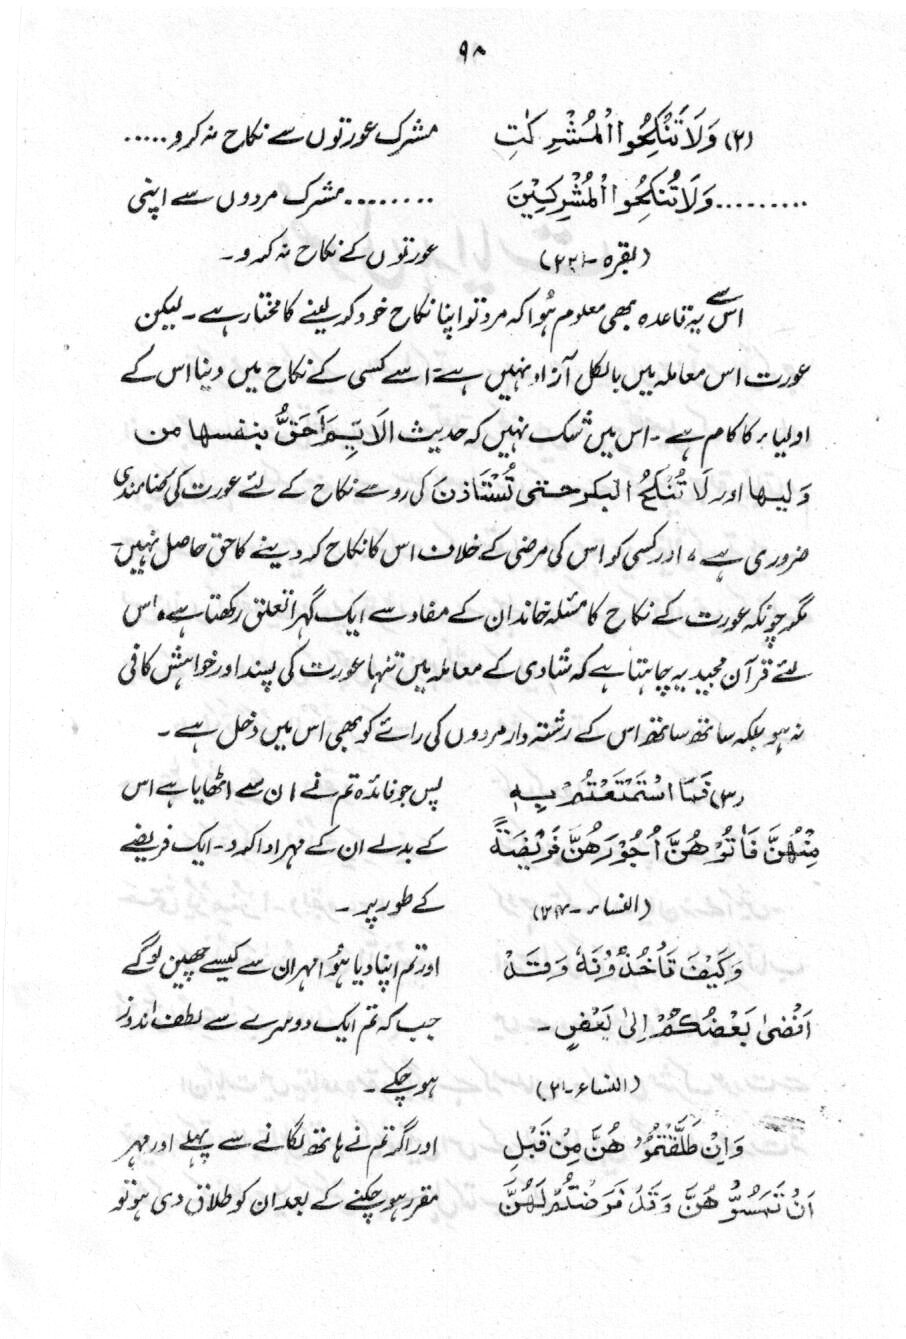 ۹۸
(۲) وَلَا تَنْكِحُوا الْمُشْرِكٰتِ مشرک عورتوں سے نکاح نہ کرو.....
.........وَلَا تُنْكِحُوا الْمُشْرِكِيْنَ ........مشرک مردوں سے اپنی
(بقرہ-۲۲۱) عورتوں کے نکاح نہ کرو۔
اس سے یہ قاعدہ بھی معلوم ہُوا کہ مرد تو اپنا نکاح خود کر لینے کا مختار ہے۔ لیکن
عورت اس معاملہ میں بالکل آزاد نہیں ہے۔ اسے کسی کے نکاح میں دینا اس کے
اولیاء کا کام ہے۔ اس میں شک نہیں کہ حدیث الَایِّمُ اَحَقُّ بنفسها من
وَلیها اور لَا تُنْكَحُ البکر حتیٰ تُسْتَاذَنَ کی رو سے نکاح کے لئے عورت کی رضامندی
ضروری ہے، اور کسی کو اس کی مرضی کے خلاف اس کا نکاح کر دینے کا حق حاصل نہیں۔
مگر چونکہ عورت کے نکاح کا مسئلہ خاندان کے مفاد سے ایک گہرا تعلق رکھتا ہے، اس
لئے قرآن مجید یہ چاہتا ہے کہ شادی کے معاملہ میں تنہا عورت کی پسند اور خواہش کافی
نہ ہو بلکہ ساتھ ساتھ اس کے رشتہ دار مردوں کی رائے کو بھی اس میں دخل ہے۔
(۳) فَمَا اسْتَمْتَعْتُمْ بِهٖ پس جو فائدہ تم نے ان سے اٹھایا ہے اس
مِنْهُنَّ فَاٰتُوْهُنَّ اُجُوْرَهُنَّ فَرِيْضَةً کے بدلے ان کے مہر ادا کرو۔ ایک فریضے
(النساء-۲۴) کے طور پر۔
وَكَيْفَ تَاْخُذُوْنَهٗ وَقَدْ اور تم اپنا دیا ہُوا مہر ان سے کیسے چھین لو گے
اَفْضٰى بَعْضُكُمْ اِلٰى بَعْضٍ۔ جب کہ تم ایک دوسرے سے لطف اندوز
(النساء-۲۱) ہو چکے۔
وَاِنْ طَلَّقْتُمُوْهُنَّ مِنْ قَبْلِ اور اگر تم نے ہاتھ لگانے سے پہلے اور مہر
اَنْ تَمَسُّوْهُنَّ وَقَدْ فَرَضْتُمْ لَهُنَّ مقرر ہو چکنے کے بعد ان کو طلاق دی ہو تو